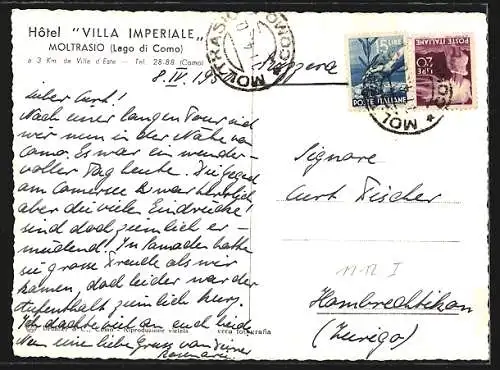 Hôtel "VILLA IMPERIALE"
MOLTRASIO (Lago di Como)
a 3 Km de Ville d'Este - Tel. 28-88 (Como)
8. IV. 19
Svizzera
Lieber Curt!
Nach einer langen Tour sind
wir nun in der Nähe von
Como. Es war ein wunder-
voller Tag heute. Die Gegend
am Comersee war herrlich
aber die vielen Eindrücke
sind doch ziemlich er-
müdend! In Samaden hatte
sie grosse Freude als wir
kamen, doch leider war der
Aufenthalt ziemlich kurz.
Ich dachte viel an euch beide
Nun eine liebe Gruss von Deiner
Rosmarie
Como - Riproduzione vietata
vera fotografia
MOLTRASIO
COMO
15 LIRE
POSTE ITALIANE
LIRE 20
POSTE ITALIANE
Signore
Curt Fischer
Hombrechtikon
(Zurigo)